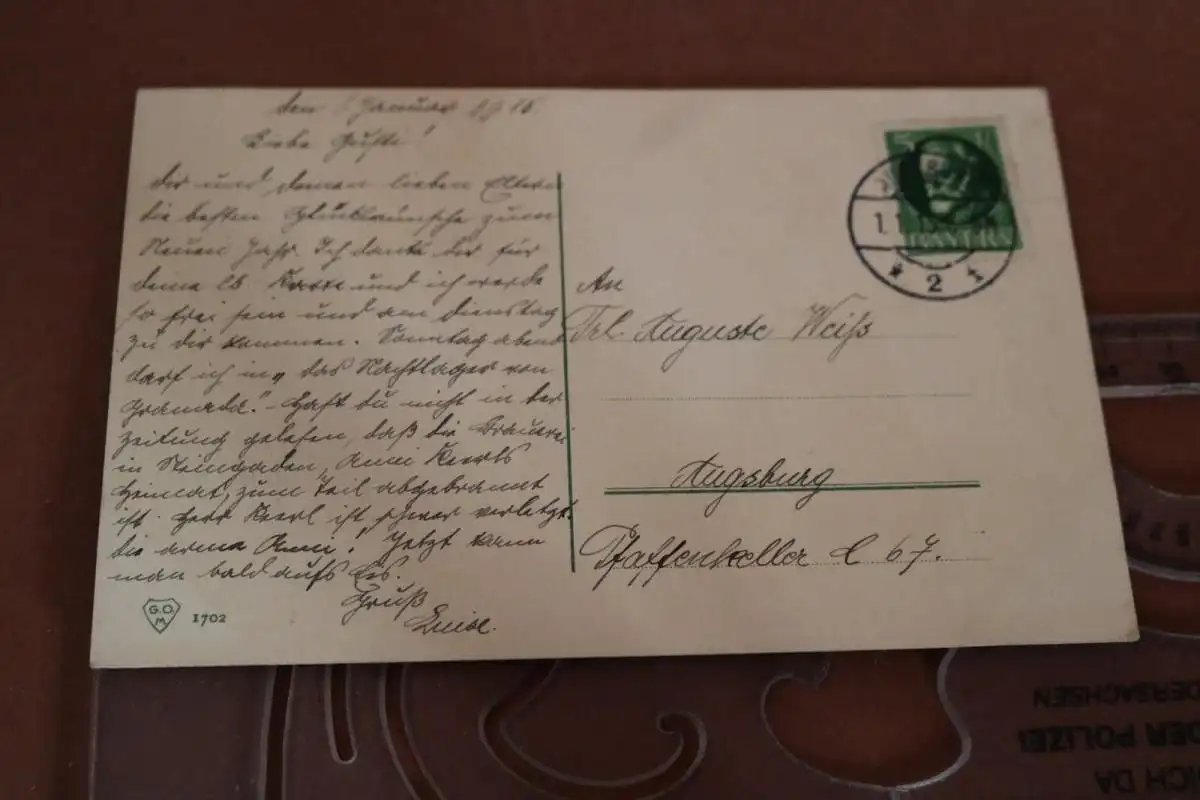 den 1. Januar 1916.
Liebe Gusti!
Dir und deinen lieben Eltern
die besten Glückwünsche zum
Neuen Jahr. Ich danke dir für
deine lb. Karte und ich werde
so frei sein und am Dienstag
zu dir kommen. Sonntag abend
darf ich in „das Nachtlager von
Granada." – Hast du nicht in der
Zeitung gelesen, daß die Brauerei
in Steingaden, Anni Keerls
Heimat, zum Teil abgebrannt
ist. Herr Keerl ist schwer verletzt.
Die arme Anni! Jetzt kann
man bald aufs Eis.
Gruß
Luise.
G.O.
M.
1702
5
BAYERN
1.1
* 2
An
Frl. Auguste Weiß
Augsburg
Pfaffenkeller C 67.
DERSACHSEN
DER POLIZEI
ICH DA